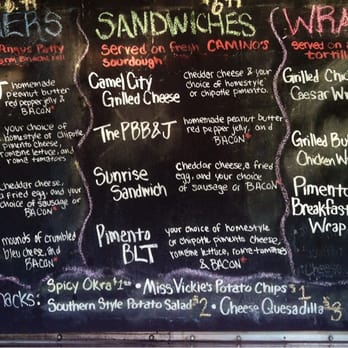 ERS
Angus Patty
homemade
peanut butter
red pepper jelly &
BACON*
your choice of
homestyle or chipotle
pimento cheese,
romaine lettuce, and
roma tomatoes
cheddar cheese, a
fried egg, and your
choice of sausage
or BACON*
mounds of crumbled
bleu cheese, and
BACON*
SANDWICHES
Served on fresh CAMINO'S
sourdough*
Camel City
Grilled Cheese
cheddar cheese & your
choice of homestyle
or chipotle pimento.
The PBB&J
homemade peanut butter,
red pepper jelly, and
BACON*
Sunrise
Sandwich
cheddar cheese, a fried
egg, and your choice
of sausage or BACON*
Pimento
BLT
your choice of homestyle
or chipotle pimento cheese,
romaine lettuce, roma tomatoes
& BACON*
WRA
Served on a
tortill
Grilled Chic
Caesar Wr
Grilled Bu
Chicken W
Pimento
Breakfast
Wrap
nacks:
Spicy Okra • Miss Vickie's Potato Chips $1
Southern Style Potato Salad $2 • Cheese Quesadilla $3